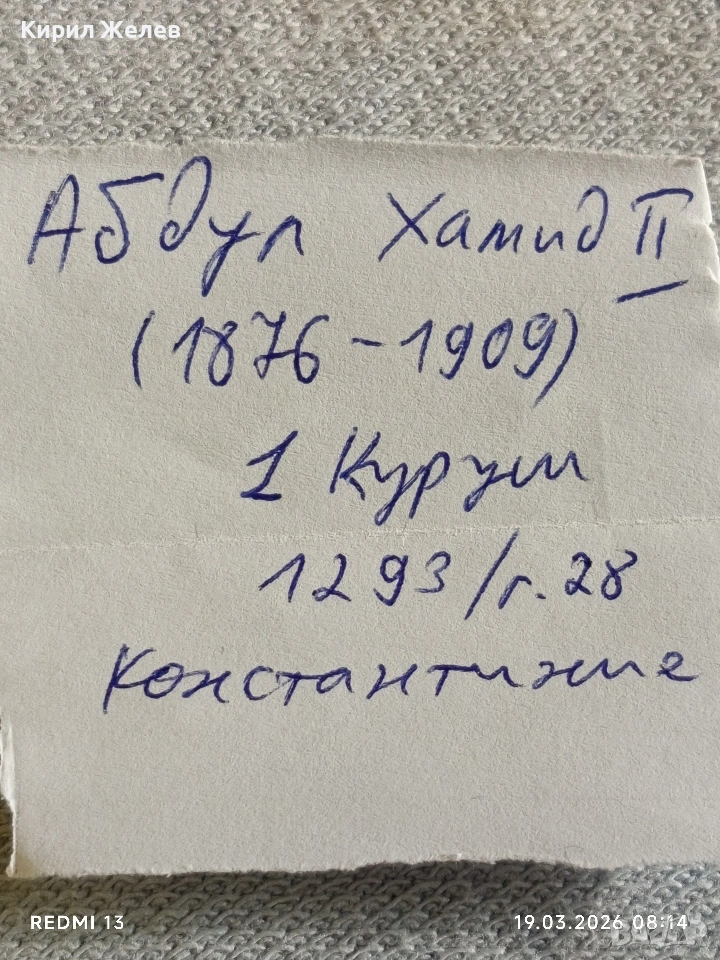 Кирил Желев
Абдул Хамид II
(1876-1909)
1 Куруш
1293/г.28
Константиние
REDMI 13
19.03.2026 08:14